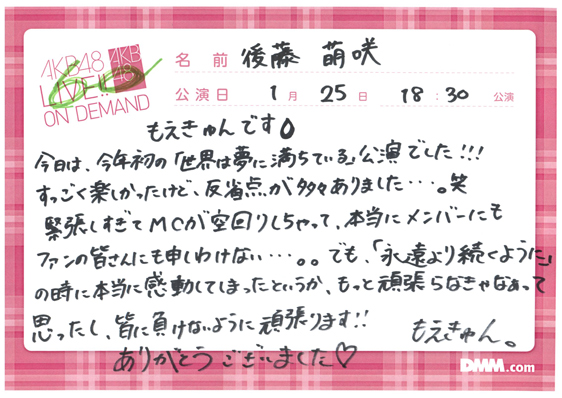 AKB48
LIVE!!
ON DEMAND
AKB
48
名前 後藤 萌咲
公演日 1月 25日 18:30 公演
もえきゅんです
今日は、今年初の「世界は夢に満ちている」公演でした!!!
すっごく楽しかったけど、反省点が多々ありました・・・。笑
緊張しすぎてMCが空回りしちゃって、本当にメンバーにも
ファンの皆さんにも申しわけない・・・。。でも、「永遠より続くように」
の時に本当に感動してしまったというか、もっと頑張らなきゃなぁって
思ったし、皆に負けないように頑張ります!!
もえきゅん。
ありがとうございました♡
DMM.com